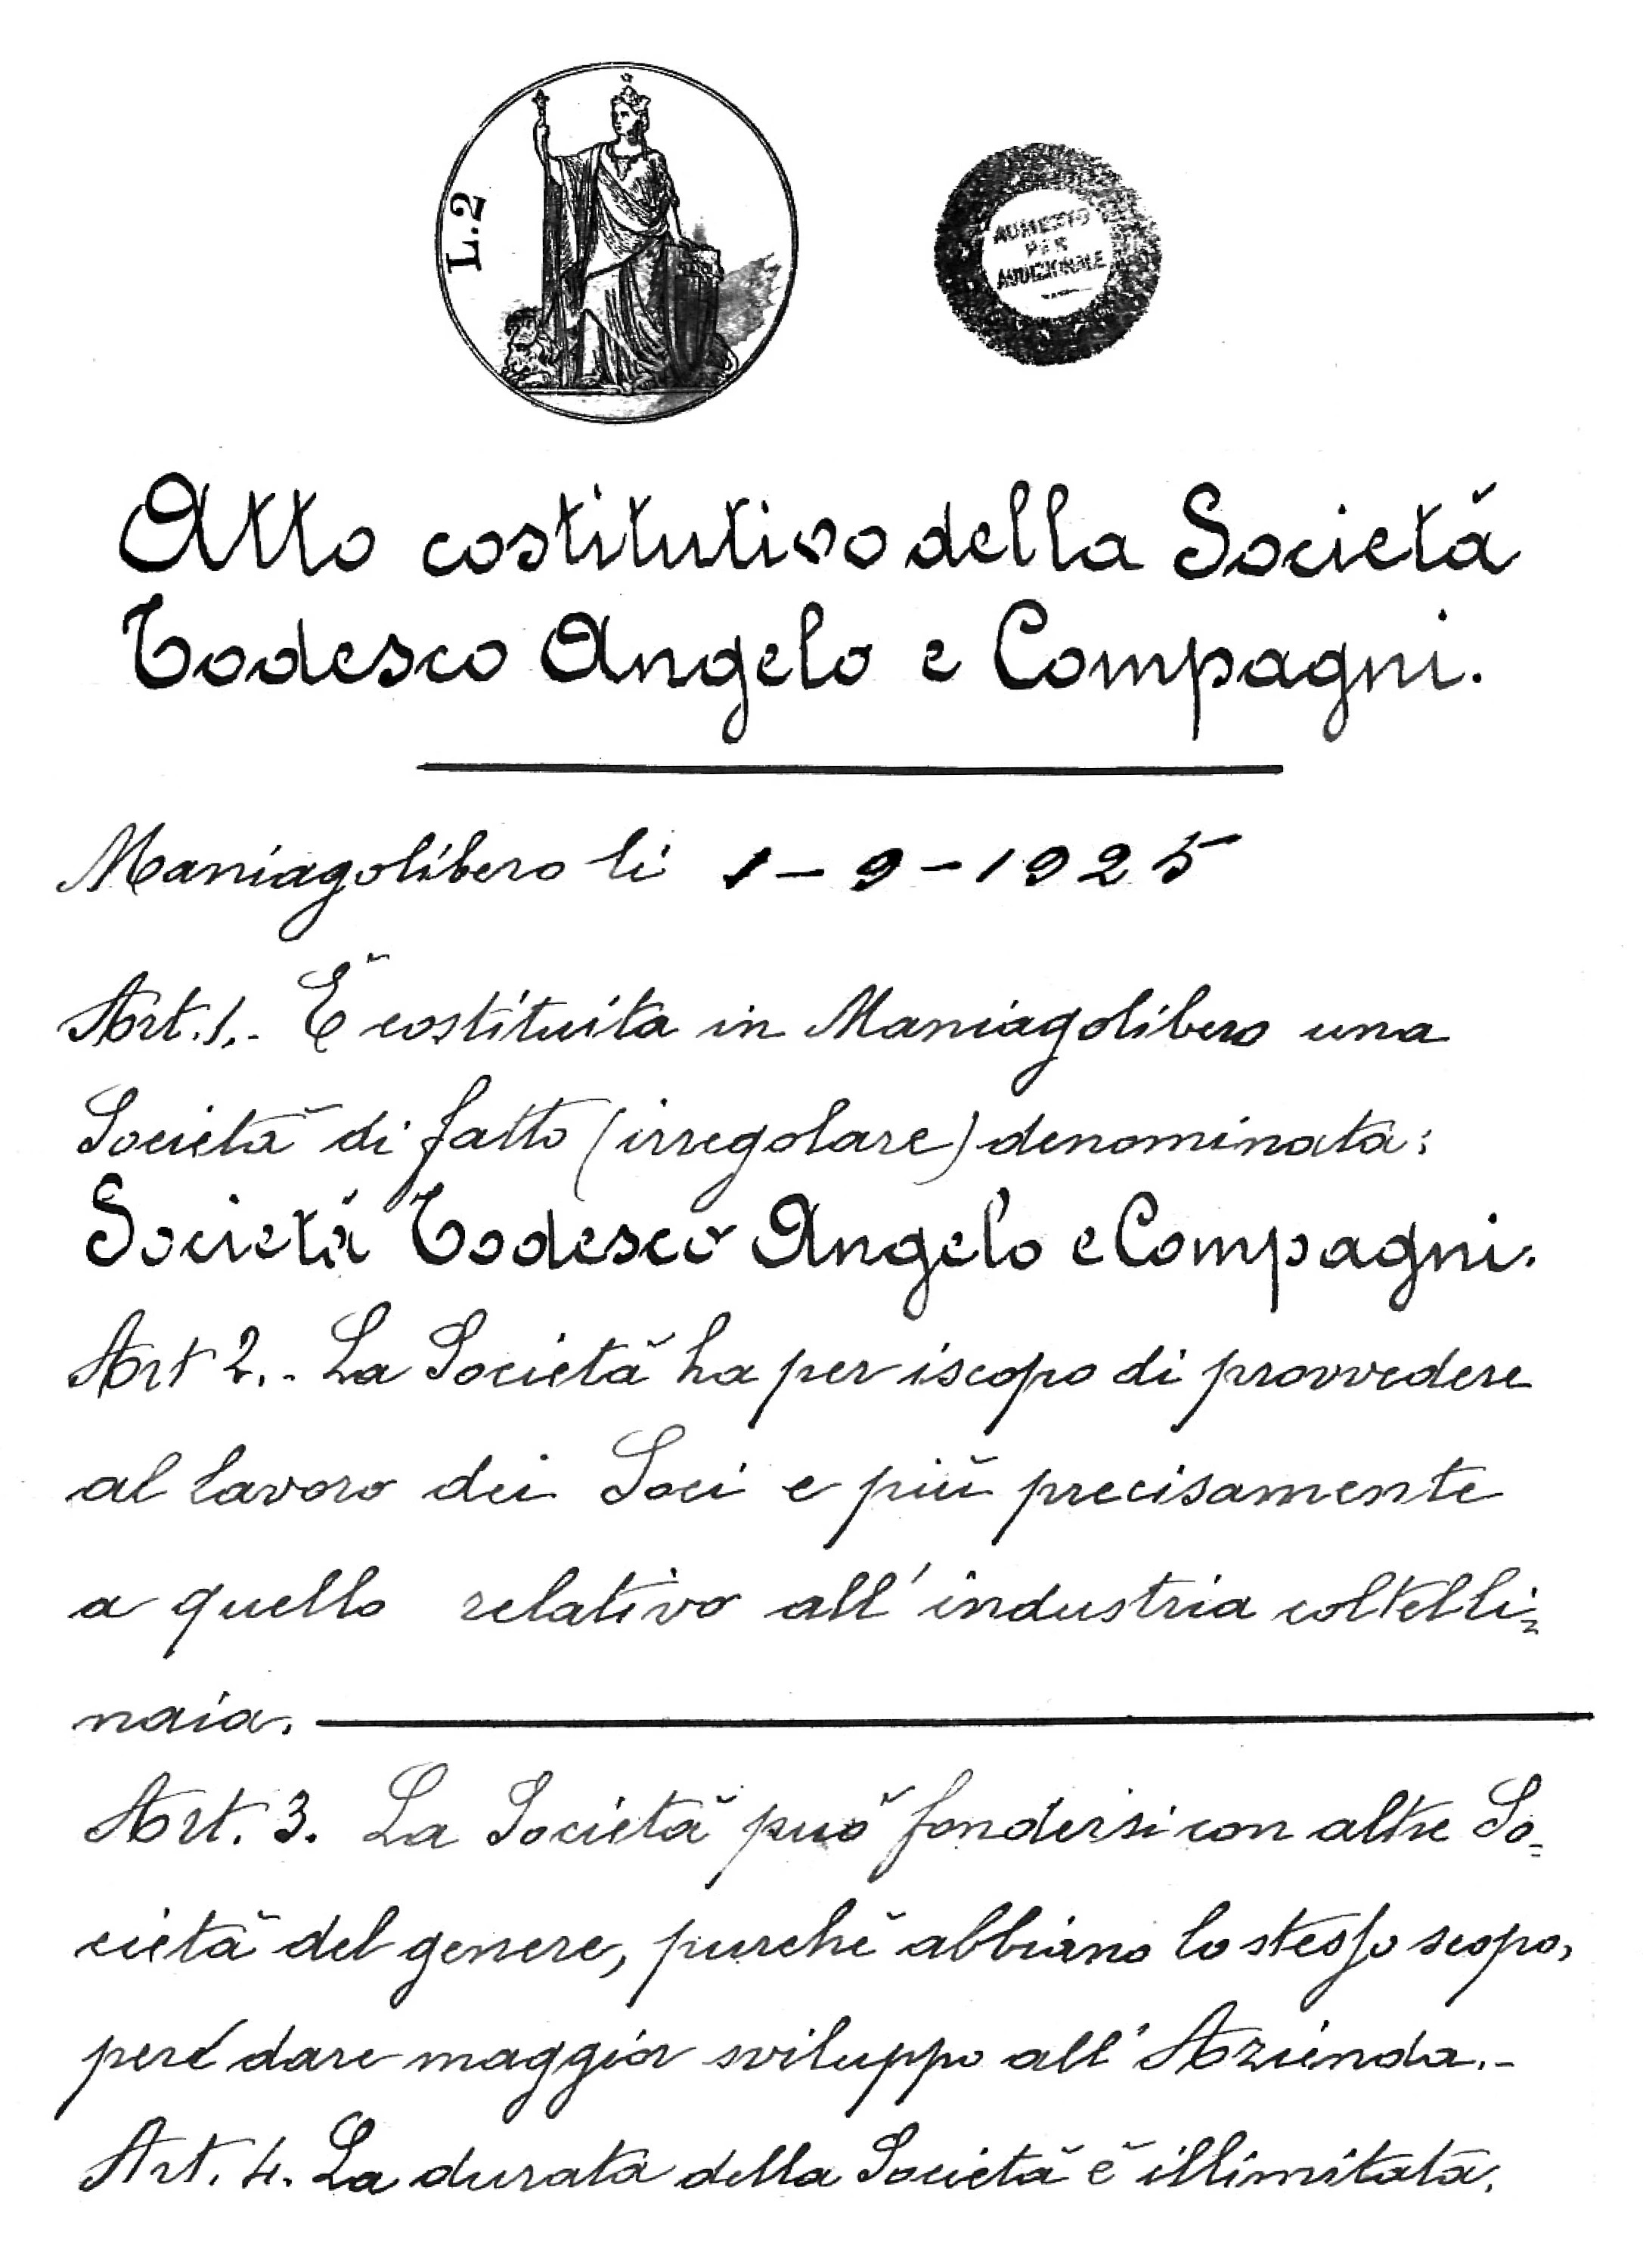 L.2
AUMENTO
PER
ADDIZIONALE
Atto costitutivo della Società
Todesco Angelo e Compagni.
Maniagolibero li 1-9-1925
Art. 1.- È costituita in Maniagolibero una
Società di fatto (irregolare) denominata:
Società Todesco Angelo e Compagni.
Art 2.- La Società ha per iscopo di provvedere
al lavoro dei Soci e più precisamente
a quello relativo all'industria coltelli=
naia.
Art. 3. La Società può fondersi con altre So=
cietà del genere, purchè abbiano lo stesso scopo,
per dare maggior sviluppo all'Azienda.-
Art. 4. La durata della Società è illimitata.